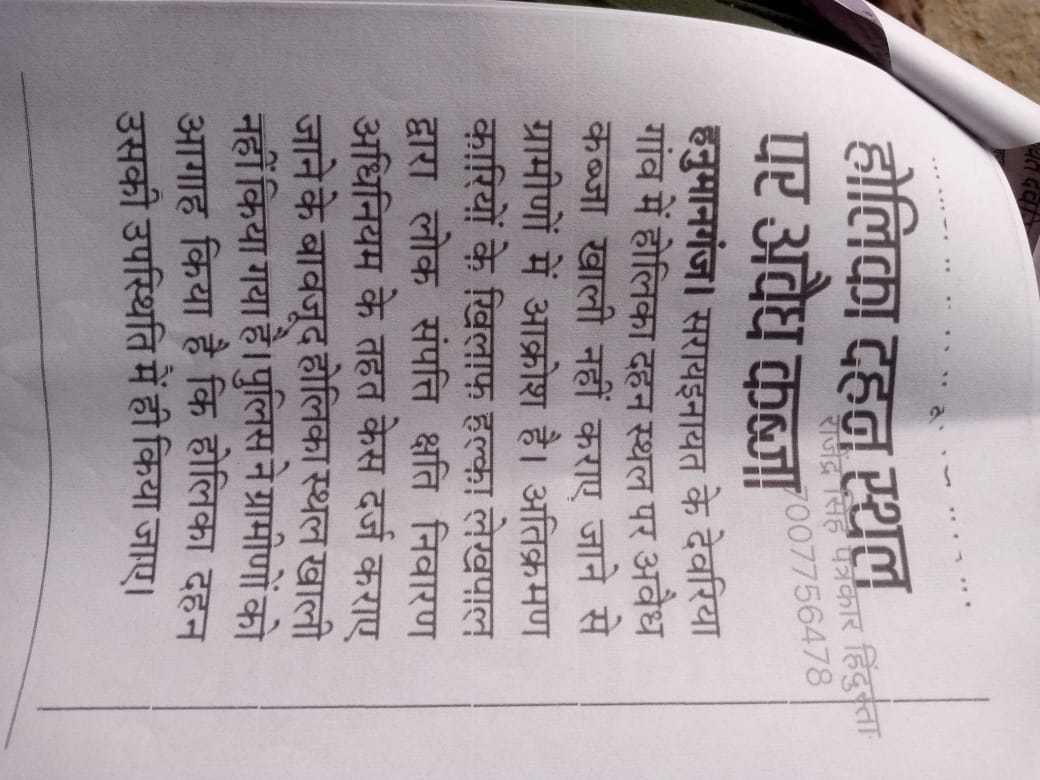 होलिका दहन स्थल
पर अवैध कब्जा
राजेंद्र सिंह पत्रकार
7007756478
हनुमानगंज। सरायइनायत के देवरिया
गांव में होलिका दहन स्थल पर अवैध
कब्जा खाली नहीं कराए जाने से
ग्रामीणों में आक्रोश है। अतिक्रमण
कारियों के खिलाफ हल्का लेखपाल
द्वारा लोक संपत्ति क्षति निवारण
अधिनियम के तहत केस दर्ज कराए
जाने के बावजूद होलिका स्थल खाली
नहीं किया गया है। पुलिस ने ग्रामीणों को
आगाह किया है कि होलिका दहन
उसकी उपस्थिति में ही किया जाए।